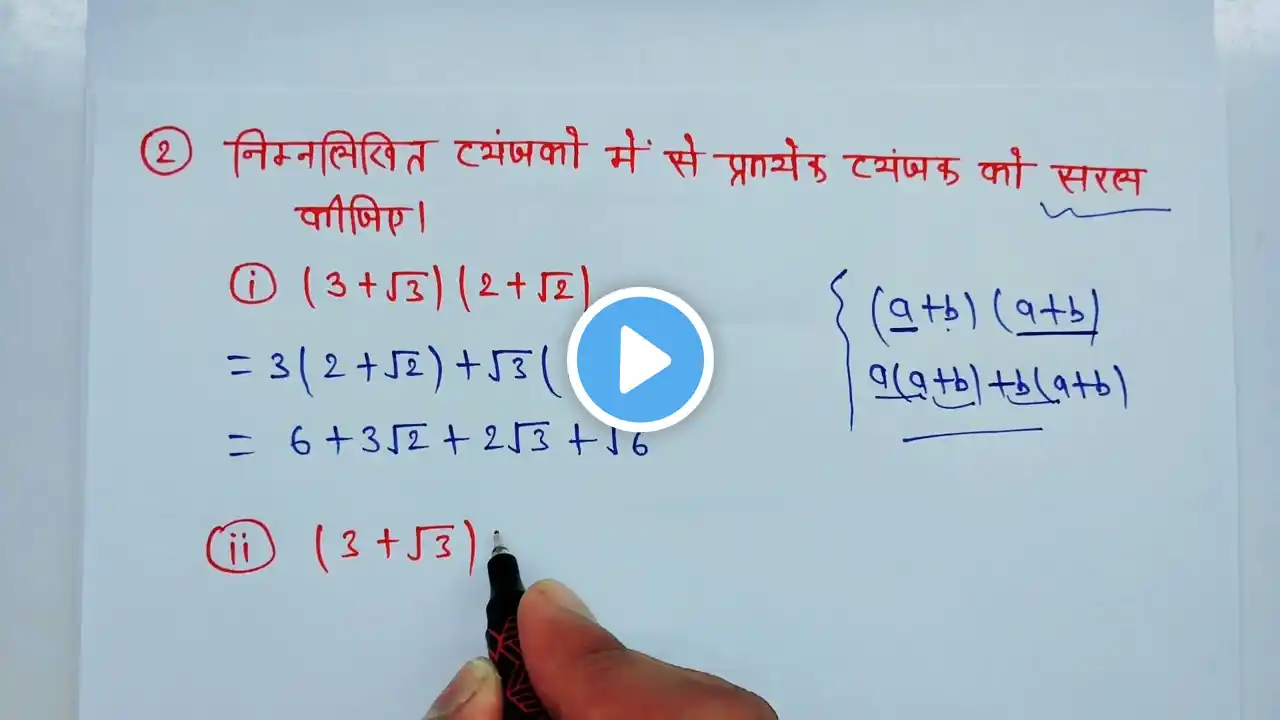 ② निम्नलिखित व्यंजको में से प्रत्येक व्यंजक को सरल
कीजिए।
ⓘ (3+√3)(2+√2)
= 3(2+√2)+√3(
= 6+3√2+2√3+√6
{ (a+b)(a+b)
a(a+b)+b(a+b)
ⓘⓘ (3+√3)